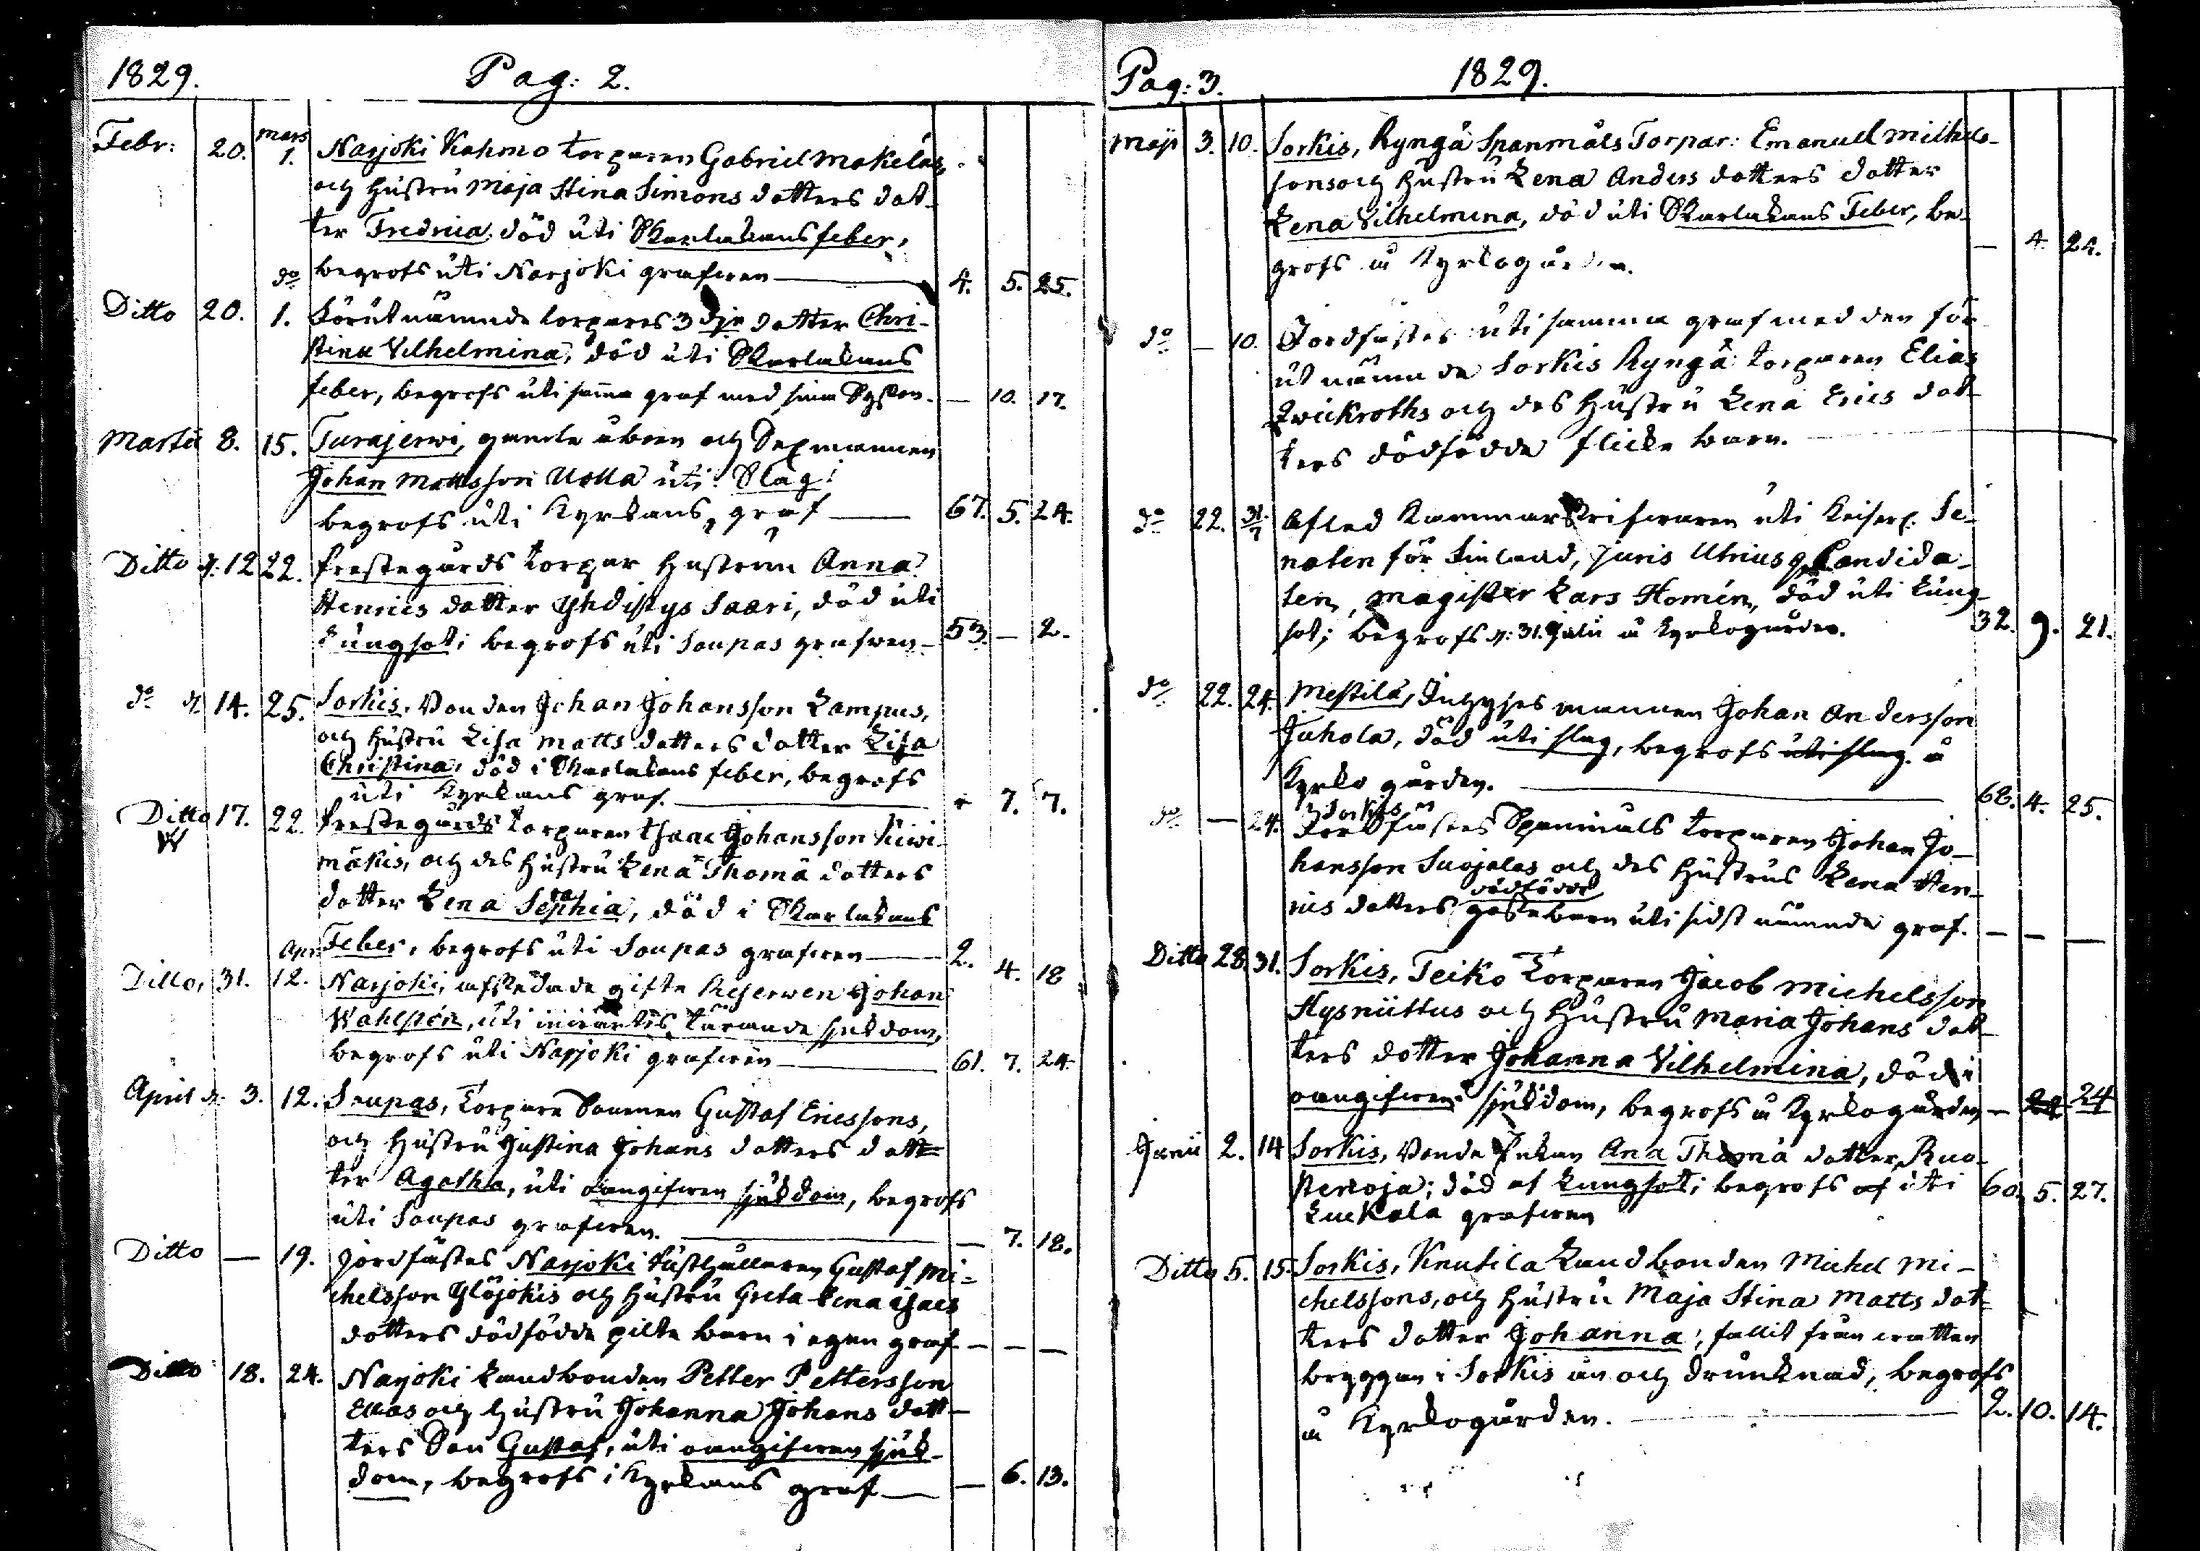 1829. Pag: 2.
Febr: 20. mars 1. Narjoki Kahmo torparen Gabriel Makeläs,
och hustru Maja Stina Simons dotters dot-
ter Fredrica, död uti Skarlakansfeber,
begrofs uti Narjoki grafwen — 4. 5. 25.
do
Ditto 20. 1. Förutnämnde torpares 3dje dotter Chri-
stina Vilhelmina, död uti Skarlakans
feber, begrofs uti samma graf med sina Syskon. — 10. 17.
Martii 8. 15. Turajerwi, gamle åboen och Sexmannen
Johan Mattsson Uotta uti Slag;
begrofs uti Kyrkans graf — 67. 5. 24.
Ditto d: 12 22. Prestegårds torpar hustrun Anna
Henrics dotter Yhdistys Saari, död uti
Lungsot; begrofs uti Soupas grafwen — 53. — 2.
do d. 14. 25. Sorkis, Bonden Johan Johansson Lampus,
och hustru Lisa Matts dotters dotter Lisa
Christina, död i Skarlakans feber, begrofs
uti Kyrkans graf. — 7. 7.
Ditto 17. 22. Prestegårds torparen Isaac Johansson Kiwi-
mäkis, och des hustru Lena Thomä dotters
dotter Lena Sophia, död i Skarlakans
Feber, begrofs uti Soupas grafwen — 2. 4. 18
Apr:
Ditto, 31. 12. Narjoki, afskedade gifte Reserwen Johan
Wahlsten, uti invärtes tärande sjukdom,
begrofs uti Narjoki grafwen — 61. 7. 24.
April d. 3. 12. Soupas, Torpare Sonen Gustaf Ericssons,
och hustru Justina Johans dotters dott=
ter Agatha, uti oangifwen sjukdom, begrofs
uti Soupas grafwen. — 7. 18.
Ditto — 19. Jordfästes Narjoki Rusthållaren Gustaf Mi=
chelsson Ylöjokis och hustru Greta Lena Isacs
dotters dödfödde pilte barn i egen graf — — —
Ditto 18. 24. Narjoki Landbonden Petter Pettersson
Eklas och hustru Johanna Johans dott-
ters Son Gustaf, uti oangifwen sjuk-
dom, begrofs i Kyrkans graf — — 6. 13.
Pag: 3. 1829.
Maji 3. 10. Sorkis, Ryngä Spanmåls Torpar: Emanuel Michels-
sons och hustru Lena Anders dotters dotter
Lena Vilhelmina, död uti Skarlakans Feber, be-
grofs å Kyrkogården. — 4. 24.
do — 10. Jordfästes uti samma graf med den för-
utnämnde Sorkis Ryngä torparen Elias
Zwickroths och des Hustru Lena Erics dot-
ters dödfödde flicke barn.
do 22. 31/7 Afled Kammarskrifwaren uti Keiserl. Se-
naten för Finland, Juris Utriusq Candida-
ten, Magister Lars Homén, död uti Lung-
sot; begrofs d: 31. Julii å Kyrkogården. 32. 9. 21.
do 22. 24. Mestilä, Inhyses mannen Johan Andersson
Juhola, död uti slag, begrofs uti slag. å
Kyrko gården. — 68. 4. 25.
do — 24. Sorkis
Jordfästes Spanmåls torparen Johan Jo-
hansson Suojalas och des Hustrus Lena Hen-
rics dotters dödfödde gosse barn uti sidst nämnde graf. — — —
Ditto 28. 31. Sorkis, Teiko Torparen Jacob Michelsson
Hysniittus och Hustru Maria Johans dot-
ters dotter Johanna Vilhelmina, död i
oangifwen sjukdom, begrofs å Kyrkogården — 24 24
Junii 2. 14 Sorkis, Bonde Enkan Ana Thomä dotter Ruo-
stenoja; död af Lungsot; begrofs af uti
Luckala grafwen 60. 5. 27.
Ditto 5. 15. Sorkis, Knutila Landbonden Michel Mi-
chelssons, och Hustru Maja Stina Matts dot=
ters dotter Johanna; fallit från watten
bryggan i Sorkis ån och drunknad, begrofs
å Kyrkogården. — 2. 10. 14.